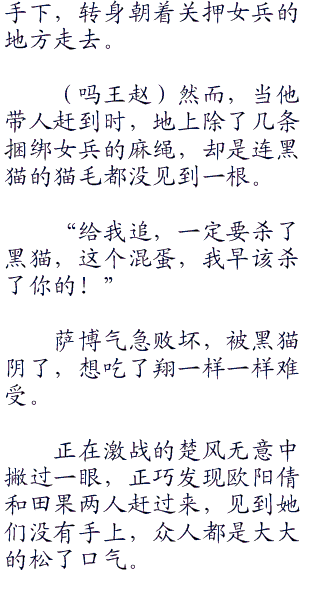 手下，转身朝着关押女兵的
地方走去。
（吗王赵）然而，当他
带人赶到时，地上除了几条
捆绑女兵的麻绳，却是连黑
猫的猫毛都没见到一根。
“给我追，一定要杀了
黑猫，这个混蛋，我早该杀
了你的！”
萨博气急败坏，被黑猫
阴了，想吃了翔一样一样难
受。
正在激战的楚风无意中
撇过一眼，正巧发现欧阳倩
和田果两人赶过来，见到她
们没有手上，众人都是大大
的松了口气。